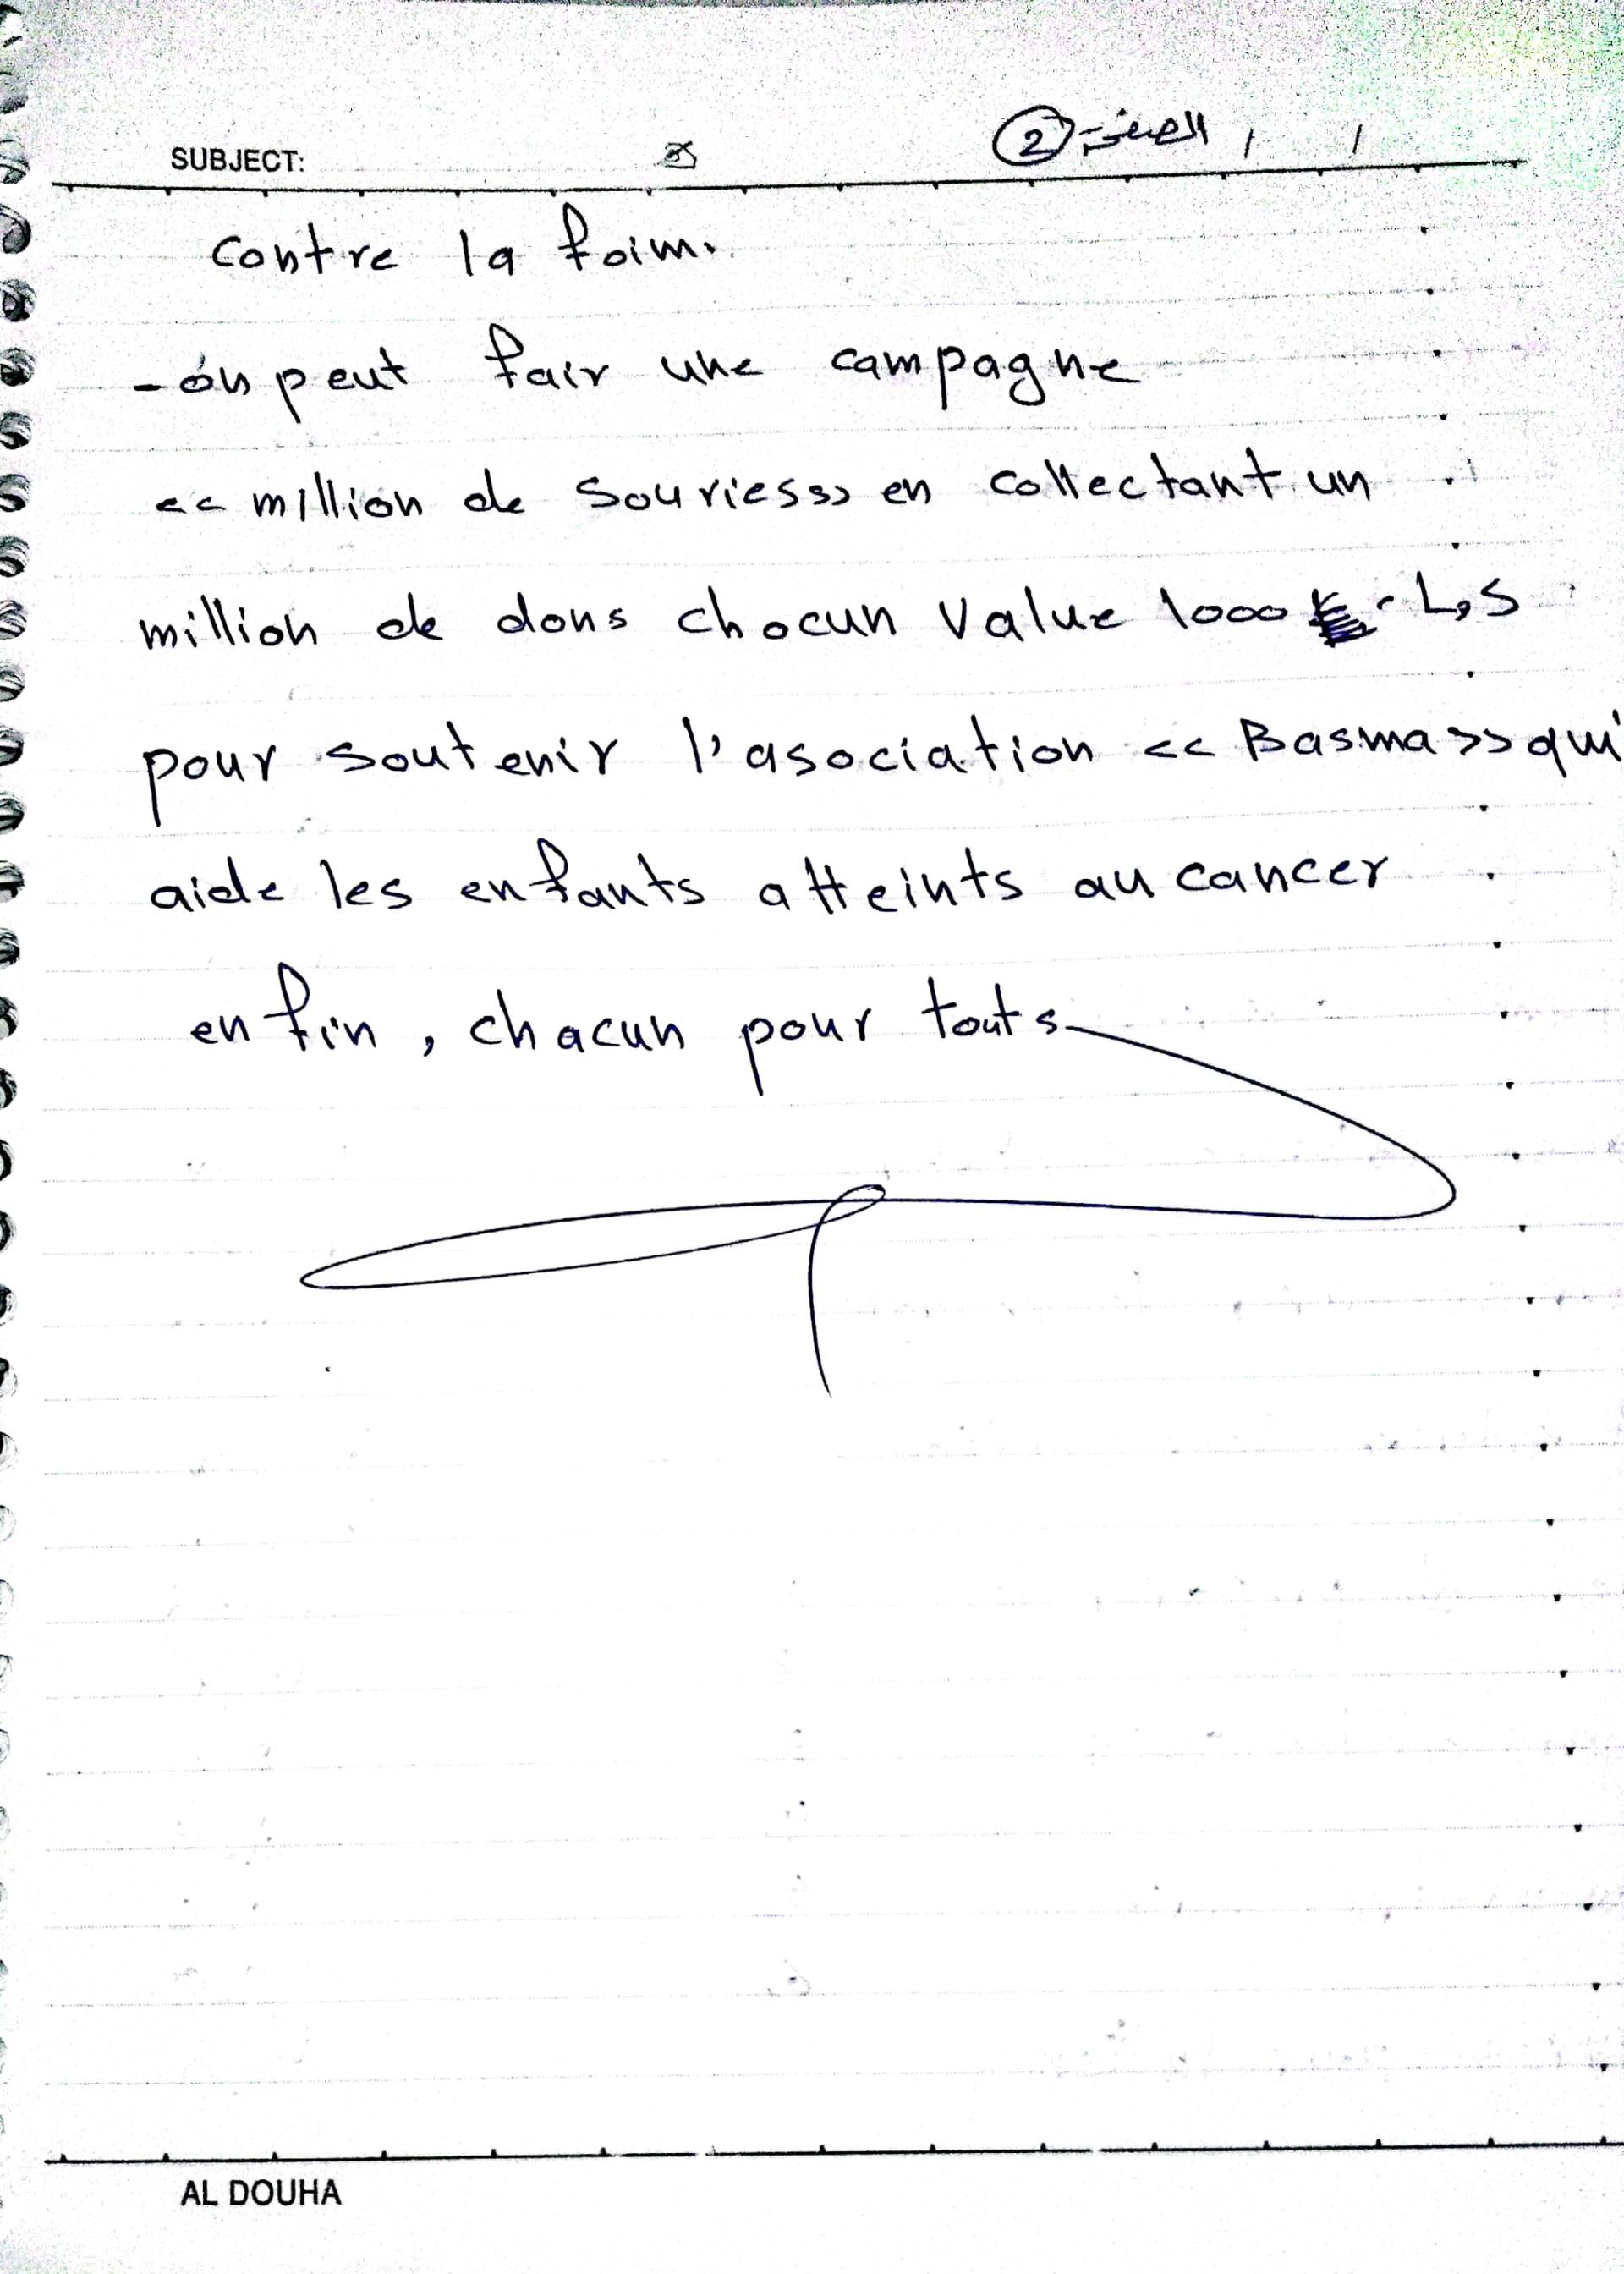 SUBJECT: الصفحة 2 / /
contre la foim.
- on peut fair une campagne
<< million de souriess>> en collectant un
million de dons chocun value 1000 L,S
pour soutenir l'asociation << Basma >> qui
aide les enfants atteints au cancer
en fin, chacun pour touts
AL DOUHA